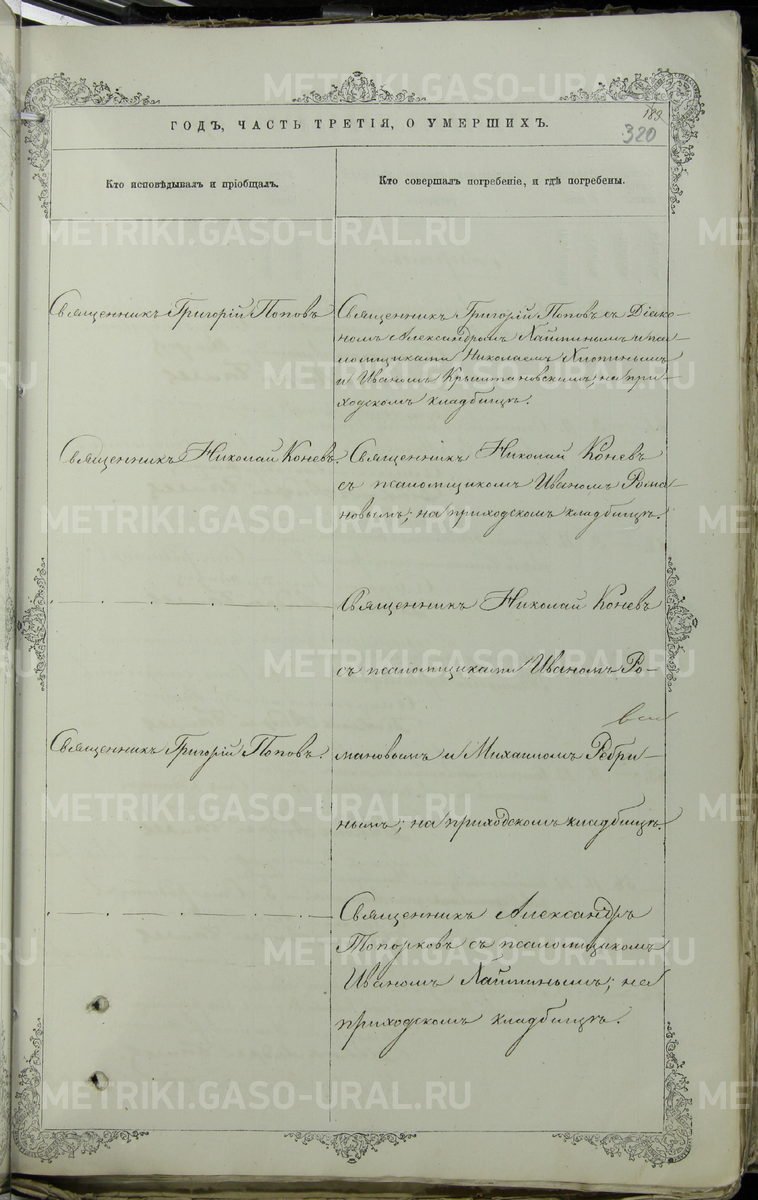 METRIKI.GASO-URAL.RU
189
320
ГОДЪ, ЧАСТЬ ТРЕТІЯ, О УМЕРШИХЪ.
Кто исповѣдывалъ и пріобщалъ.
Кто совершалъ погребеніе, и гдѣ погребены.
Священникъ Григорій Поповъ
Священникъ Григорій Поповъ съ Діако-
номъ Александромъ Лаптинымъ и пса-
ломщиками Николаемъ
и Иваномъ на при-
ходскомъ кладбищѣ.
Священникъ Николай Коневъ.
Священникъ Николай Коневъ
съ псаломщикомъ Иваномъ Рома-
новымъ; на приходскомъ кладбищѣ.
Священникъ Николай Коневъ
съ псаломщиками Иваномъ Ро-
Священникъ Григорій Поповъ.
мановымъ и Михаиломъ Ребри-
нымъ; на приходскомъ кладбищѣ.
Священникъ Александръ
Топорковъ съ псаломщикомъ
Иваномъ Лаптинымъ; на
приходскомъ кладбищѣ.